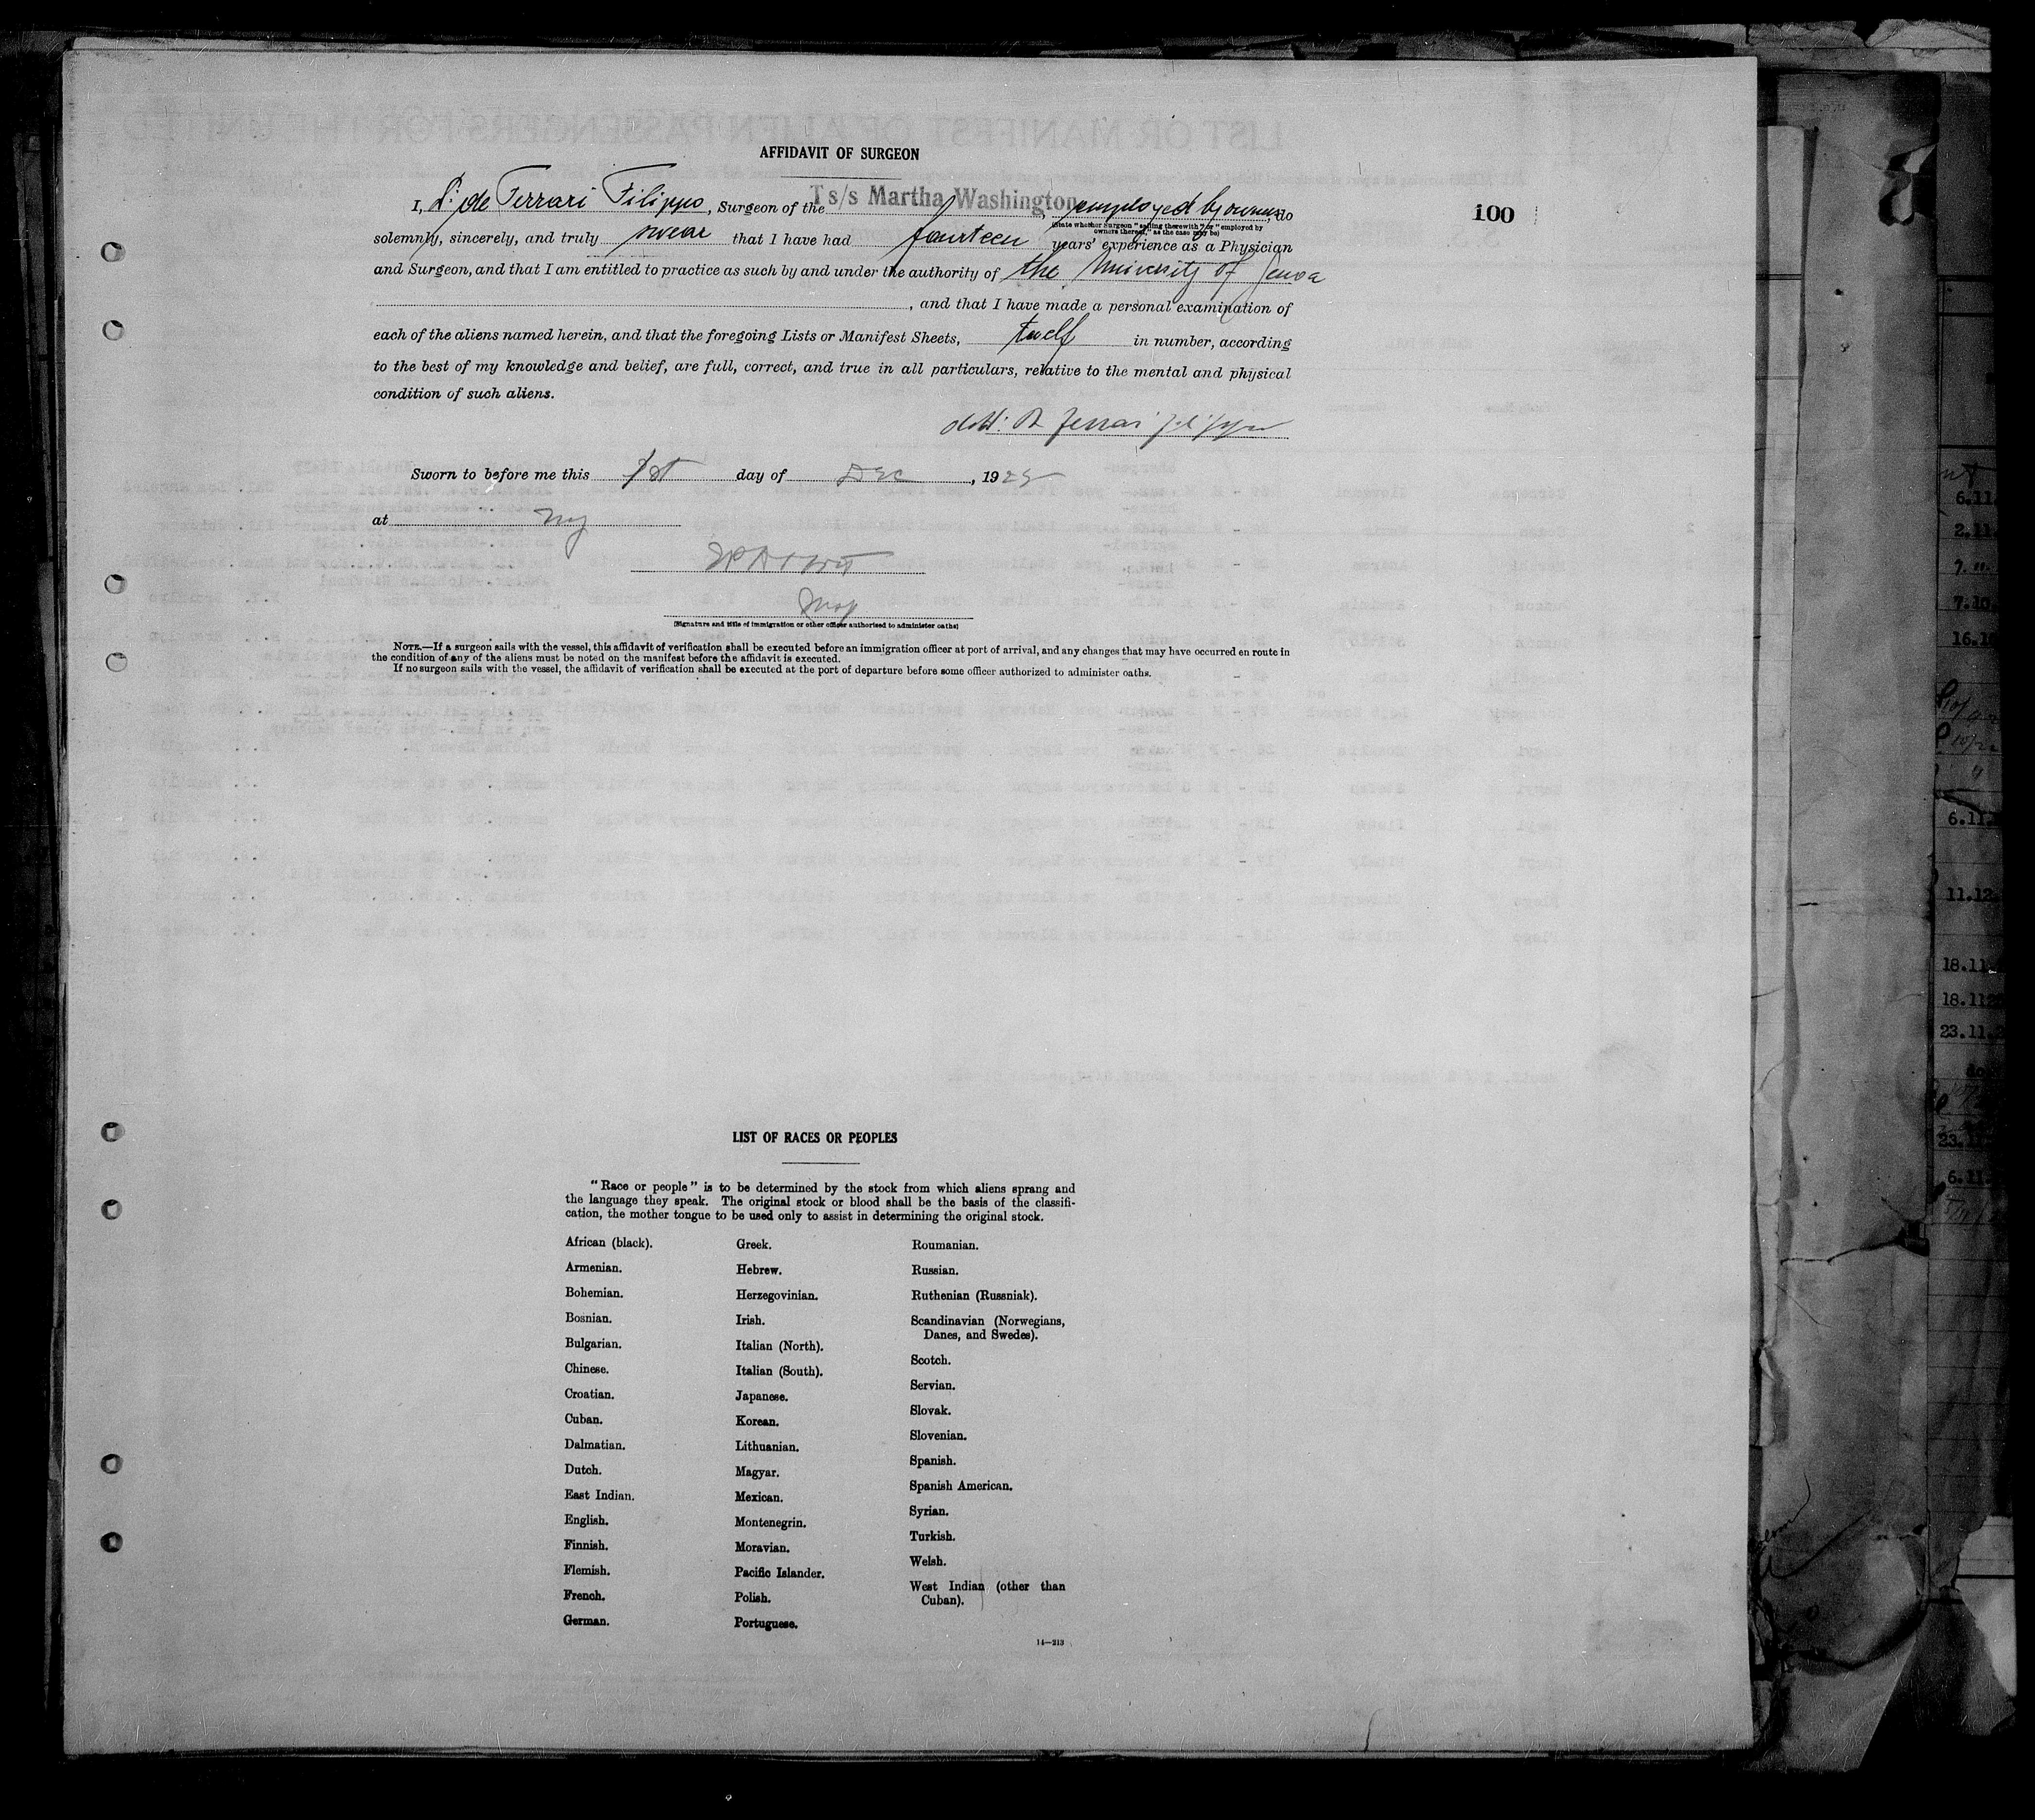 AFFIDAVIT OF SURGEON
I, D: de Ferrari Filippo, Surgeon of the T s/s Martha Washington, employed by owners, do
(State whether Surgeon "sailing therewith" or "employed by
owners thereof," as the case may be)
100
solemnly, sincerely, and truly swear that I have had fourteen years' experience as a Physician
and Surgeon, and that I am entitled to practice as such by and under the authority of the University of Genoa
, and that I have made a personal examination of
each of the aliens named herein, and that the foregoing Lists or Manifest Sheets, twelf in number, according
to the best of my knowledge and belief, are full, correct, and true in all particulars, relative to the mental and physical
condition of such aliens.
dott: D Ferrari Filippo
Sworn to before me this 1st day of Dec, 1925
at NY
Insp
(Signature and title of immigration or other officer authorized to administer oaths)
NOTE.—If a surgeon sails with the vessel, this affidavit of verification shall be executed before an immigration officer at port of arrival, and any changes that may have occurred en route in
the condition of any of the aliens must be noted on the manifest before the affidavit is executed.
If no surgeon sails with the vessel, the affidavit of verification shall be executed at the port of departure before some officer authorized to administer oaths.
LIST OF RACES OR PEOPLES
"Race or people" is to be determined by the stock from which aliens sprang and
the language they speak. The original stock or blood shall be the basis of the classifi-
cation, the mother tongue to be used only to assist in determining the original stock.
African (black).
Armenian.
Bohemian.
Bosnian.
Bulgarian.
Chinese.
Croatian.
Cuban.
Dalmatian.
Dutch.
East Indian.
English.
Finnish.
Flemish.
French.
German.
Greek.
Hebrew.
Herzegovinian.
Irish.
Italian (North).
Italian (South).
Japanese.
Korean.
Lithuanian.
Magyar.
Mexican.
Montenegrin.
Moravian.
Pacific Islander.
Polish.
Portuguese.
Roumanian.
Russian.
Ruthenian (Russniak).
Scandinavian (Norwegians,
Danes, and Swedes).
Scotch.
Servian.
Slovak.
Slovenian.
Spanish.
Spanish American.
Syrian.
Turkish.
Welsh.
West Indian (other than
Cuban).
14—213
6.11.
2.11.
7.10.
6.11.
11.12.
18.11.
23.11.
6.11.